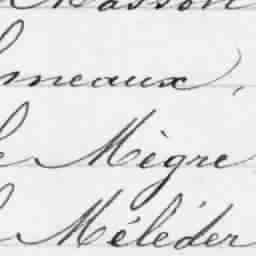 Masson
meaux,
Mègre
Méléder